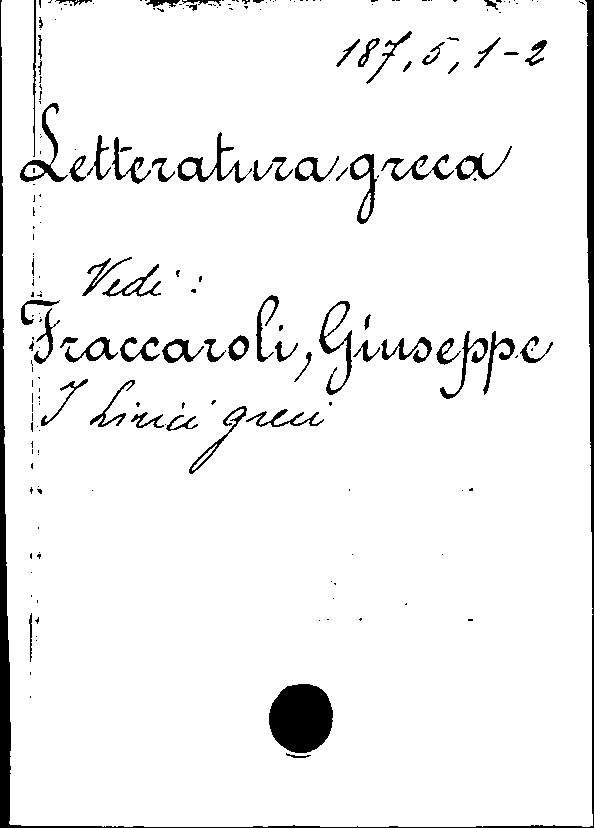 187, 5, 1-2
Letteratura greca
Vedi:
Fraccaroli, Giuseppe
I Lirici greci